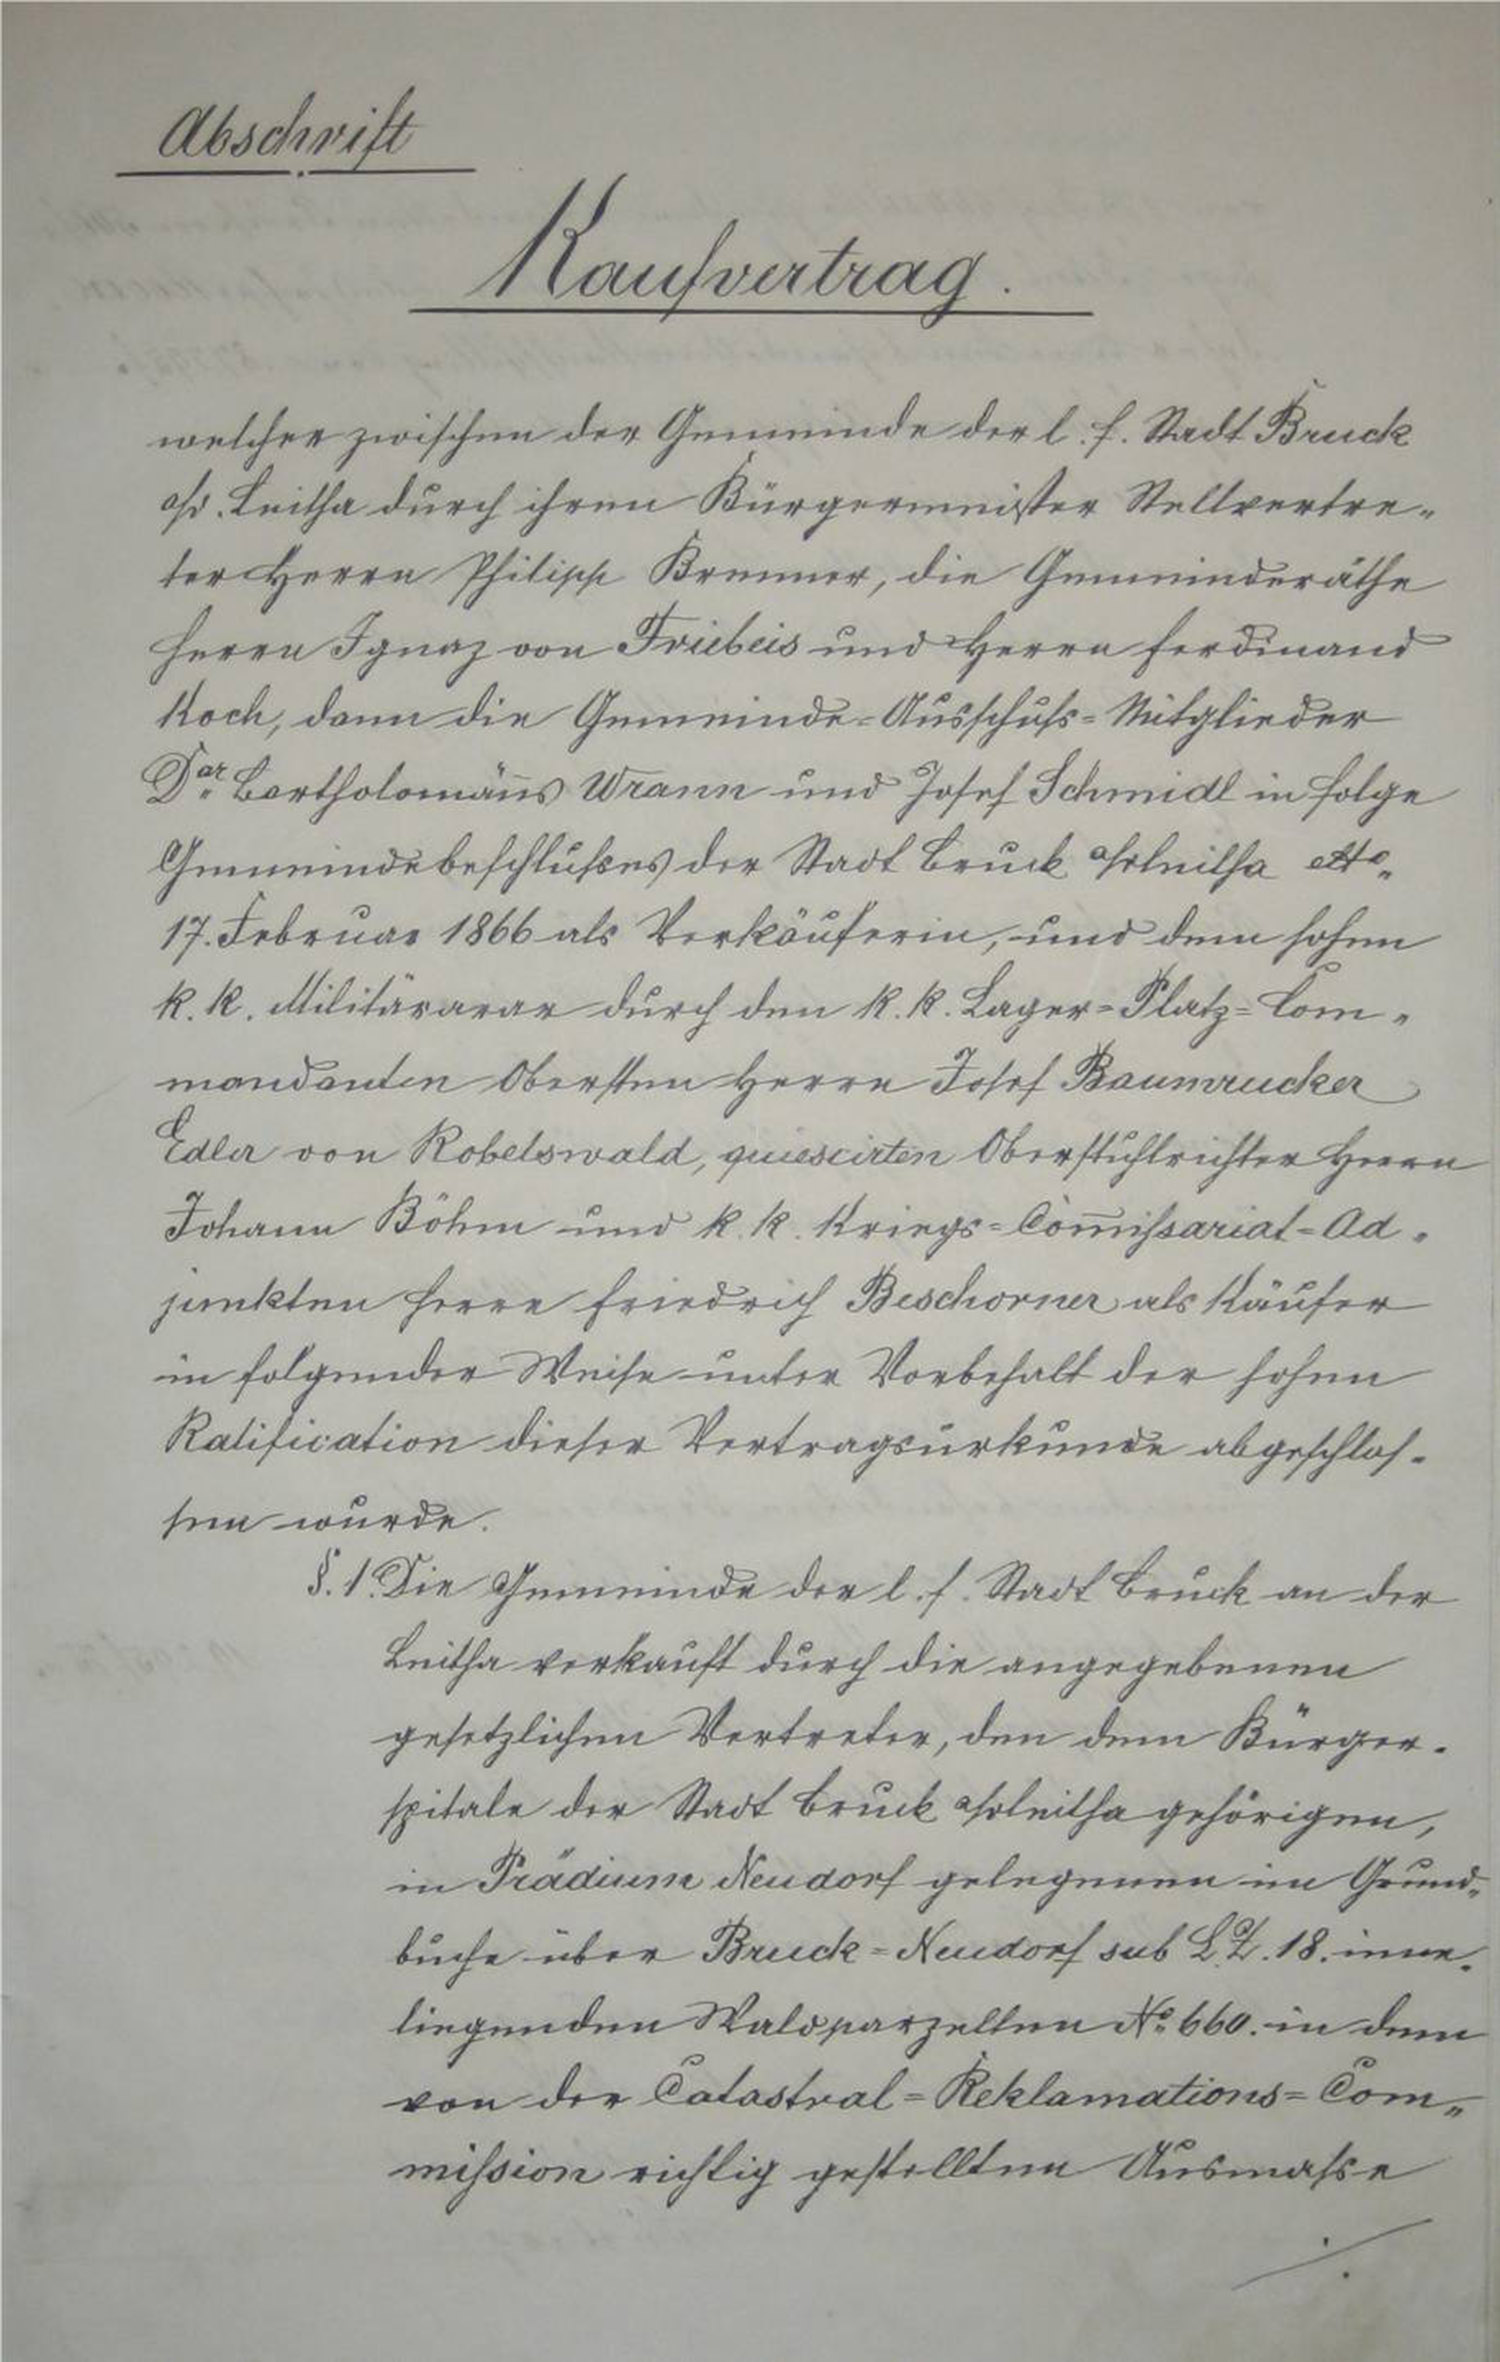 Abschrift
Kaufvertrag.
welcher zwischen der Gemeinde der l. f. Stadt Bruck
a/d. Leitha durch ihren Bürgermeister Stellvertre-
ter Herrn Philipp Brenner, die Gemeinderäthe
Herrn Ignaz von Friebeis und Herrn Ferdinand
Koch, dann die Gemeinde-Ausschuß-Mitglieder
Dor Bartholomäus Wrann und Josef Schmidl in Folge
Gemeindebeschlußes der Stadt Bruck a/d Leitha dtto
17. Februar 1866 als Verkäuferin, und dem hohen
k. k. Militärarar durch den k. k. Lager-Platz-Com-
mandanten Obersten Herrn Josef Baumrucker
Edler von Robelswald, quiescirten Oberstuhlrichter Herrn
Johann Böhm und k. k. Kriegs-Com̅ißariat-Ad-
junkten Herrn Friedrich Beschorner als Käufer
in folgender Weise unter Vorbehalt der hohen
Ratification dieser Vertragsurkunde abgeschlos-
sen wurde.
§. 1. Die Gemeinde der l. f. Stadt Bruck an der
Leitha verkauft durch die angegebenen
gesetzlichen Vertreter, den dem Bürger-
spitale der Stadt Bruck a/d Leitha gehörigen,
in Prädium Neudorf gelegenen im Grund-
buche über Bruck-Neudorf sub L.Z. 18. inne-
liegenden Waldparzellen No. 660. in dem
von der Catastral-Reklamations-Com-
mißion richtig gestellten Ausmaße
./.